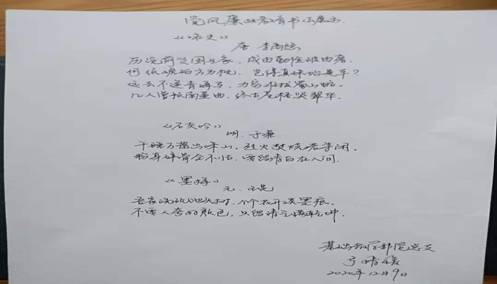 党风廉政教育书法展
《咏史》
唐 李商隐
历览前贤国与家,成由勤俭破由奢。
何须琥珀方为枕,岂得真珠始是车?
运去不逢青海马,力穷难拔蜀山蛇。
几人曾预南薰曲,终古苍梧哭翠华。
《石灰吟》
明 于谦
千锤万凿出深山,烈火焚烧若等闲。
粉身碎骨全不怕,要留清白在人间。
《墨梅》
元 王冕
吾家洗砚池头树,个个花开淡墨痕。
不要人夸好颜色,只留清气满乾坤。
基础医学
2020年12月9日